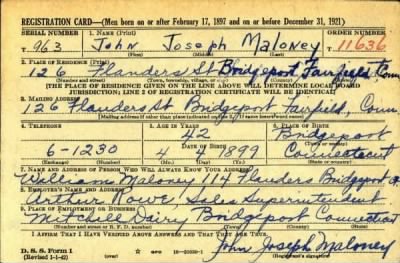 REGISTRATION CARD—(Men born on or after February 17, 1897 and on or before December 31, 1921)
SERIAL NUMBER 1. NAME (Print) ORDER NUMBER
T 963 John Joseph Maloney T 11636
(First) (Middle) (Last)
2. PLACE OF RESIDENCE (Print)
126 Flanders St Bridgeport Fairfield Conn
(Number and street) (Town, township, village, or city) (County) (State)
[THE PLACE OF RESIDENCE GIVEN ON THE LINE ABOVE WILL DETERMINE LOCAL BOARD
JURISDICTION; LINE 2 OF REGISTRATION CERTIFICATE WILL BE IDENTICAL]
3. MAILING ADDRESS
126 Flanders St Bridgeport Fairfield, Conn.
[Mailing address if other than place indicated on line 2. If same insert word same]
4. TELEPHONE 5. AGE IN YEARS 6. PLACE OF BIRTH
42 Bridgeport
DATE OF BIRTH (Town or county)
6-1230 4 4 1899 Connecticut
(Exchange) (Number) (Mo.) (Day) (Yr.) (State or country)
7. NAME AND ADDRESS OF PERSON WHO WILL ALWAYS KNOW YOUR ADDRESS
William Maloney 114 Flanders Bridgeport
8. EMPLOYER'S NAME AND ADDRESS
Arthur Rowe, Sales Superintendent
9. PLACE OF EMPLOYMENT OR BUSINESS
Mitchell Dairy Bridgeport Connecticut
(Number and street or R. F. D. number) (Town) (County) (State)
I AFFIRM THAT I HAVE VERIFIED ABOVE ANSWERS AND THAT THEY ARE TRUE.
D. S. S. Form 1
(Revised 1-1-42) GPO John Joseph Maloney